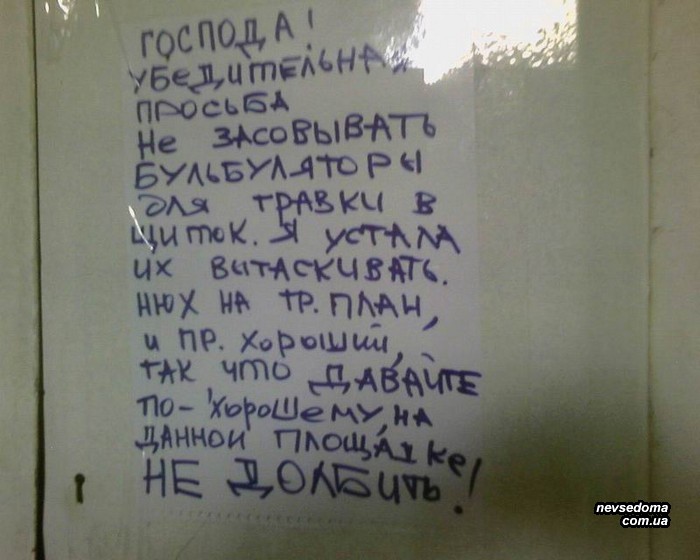 ГОСПОДА!
УБЕДИТЕЛЬНАЯ
ПРОСЬБА
НЕ ЗАСОВЫВАТЬ
БУЛЬБУЛЯТОРЫ
ДЛЯ ТРАВКИ В
ЩИТОК. Я УСТАЛА
ИХ ВЫТАСКИВАТЬ.
НЮХ НА ТР. ПЛАН,
И ПР. ХОРОШИЙ,
ТАК ЧТО ДАВАЙТЕ
ПО-ХОРОШЕМУ, НА
ДАННОЙ ПЛОЩАДКЕ
НЕ ДОЛБИТЬ!
nevsedoma
com.ua